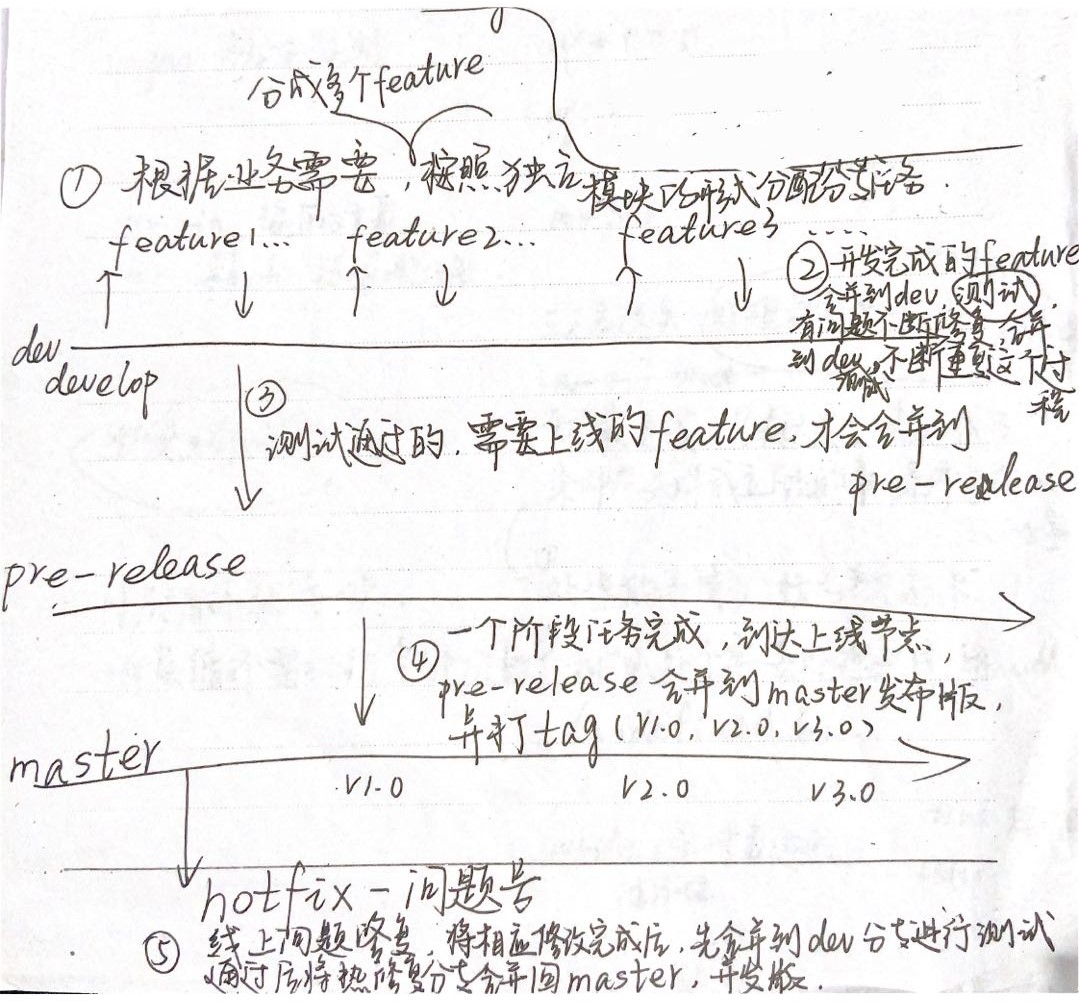 分成多个feature
① 根据业务需要，按照独立模块的形式分配任务.
feature1... feature2... feature3 ....
②开发完成的feature
合并到dev,测试,
有问题不断修复,合并
到dev,不断重复这个过
测试
程
dev
develop
③
测试通过的，需要上线的feature，才会合并到
pre-release
pre-release
④ 一个阶段任务完成，到达上线节点，
pre-release 合并到master发布版，
并打tag (V1.0, V2.0, V3.0)
master
V1.0 V2.0 V3.0
hotfix-问题号
⑤ 线上问题修复，将相应修改完成后，先合并到dev分支进行测试
通过后将热修复分支合并回master，并发版.